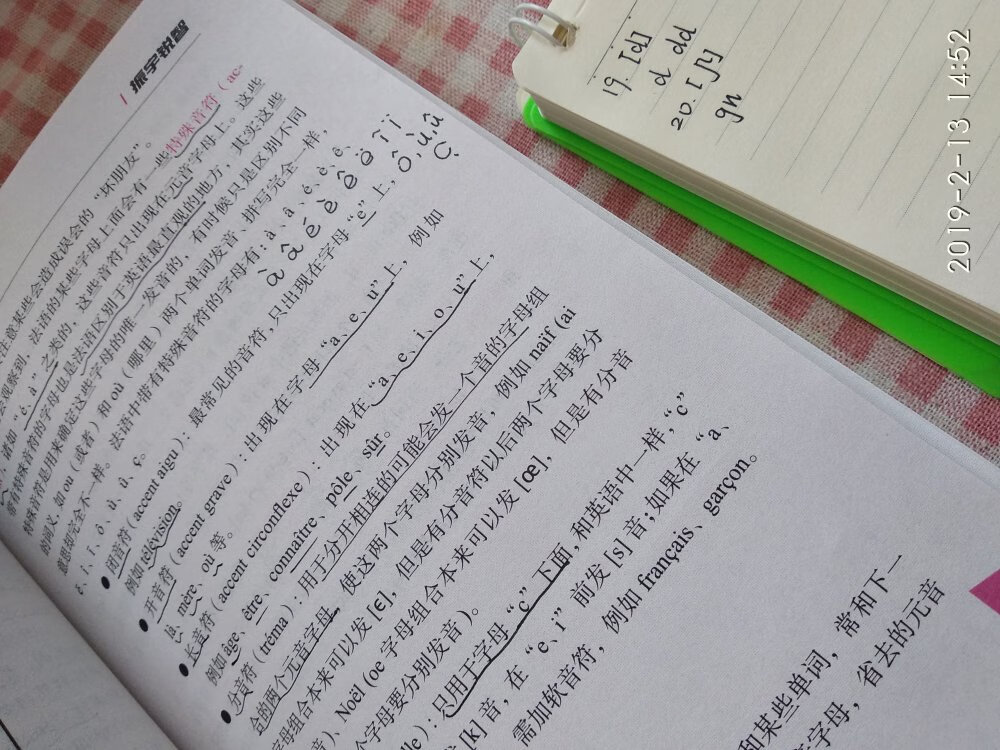 振宇锐智
注意某些会造成误会的“坏朋友”。
观察到，法语的某些字母上面会有一些特殊音符（ac-
诸如“é, à”之类的，这些音符只出现在元音字母上。这些
带有特殊音符的字母也是法语区别于英语最直观的地方，其实这些
特殊音符是用来确定这些字母的唯一发音的，有时候只是区别不同
的词义，如 ou（或者）和 où（哪里）两个单词发音、拼写完全一样，
意思却完全不一样。法语中带有特殊音符的字母有：à、â、é、è、ê、
ë、î、ï、ô、ù、û、ç。
à â é è ê ë î ï
ô, ù, û
ç
● 闭音符（accent aigu）：最常见的音符，只出现在字母“e”上，
例如 télévision。
● 开音符（accent grave）：出现在字母“a、e、u”上，例如
là、mère、où 等。
● 长音符（accent circonflexe）：出现在“a、e、i、o、u”上，
例如 âge、être、connaître、pôle、sûr。
● 分音符（tréma）：用于分开相连的可能会发一个音的字母组
合的两个元音字母，使这两个字母分别发音，例如 naïf (ai
字母组合本来可以发 [ɛ]，但是有分音符以后两个字母要分
音）、Noël (oe 字母组合本来可以发 [œ]，但是有分音
字母要分别发音）。
：只用于字母“c”下面，和英语中一样，“c”
[k] 音，在“e、i”前发 [s] 音；如果在“a、
需加软音符，例如 français、garçon。
和某些单词，常和下一
字母，省去的元音
19. [d]
d dd
20. [ɲ]
gn
2019-2-13 14:52